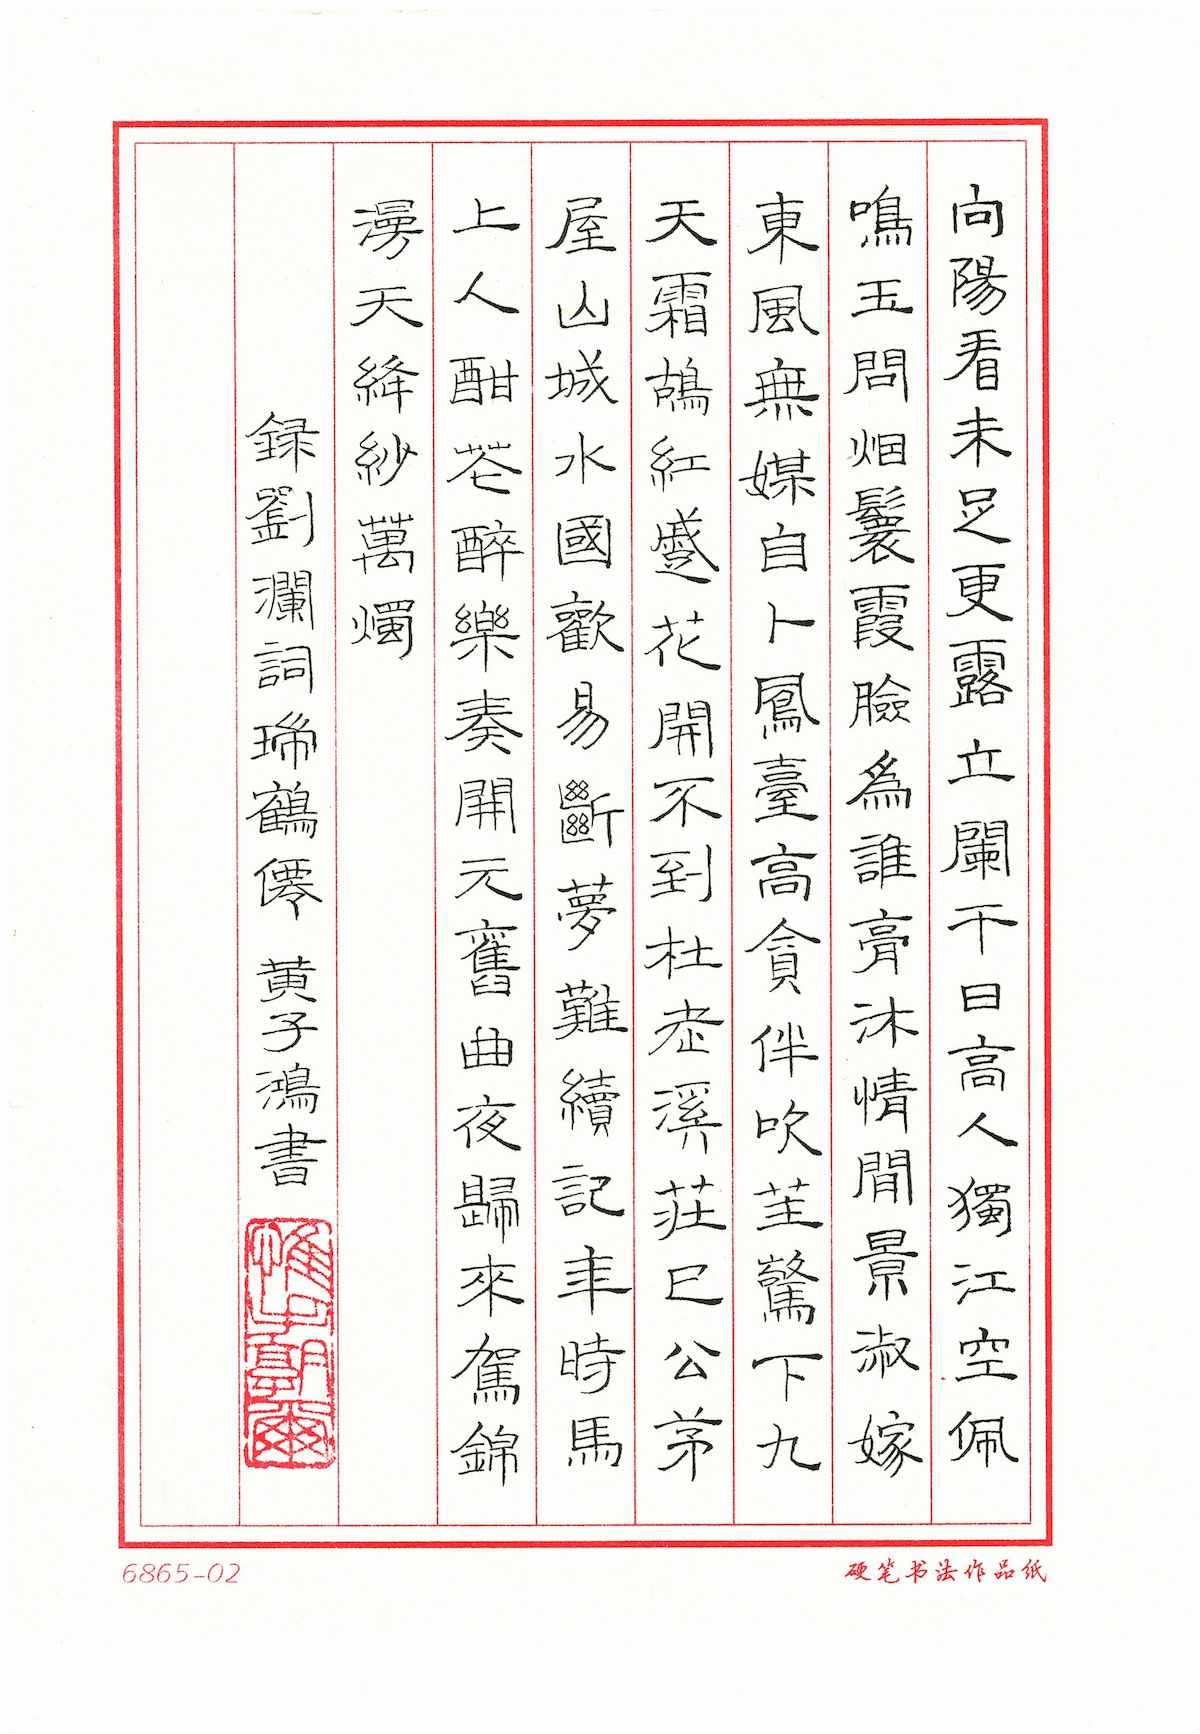 向陽看未足更露立闌干日高人獨江空佩
鳴玉問烟鬟霞臉為誰膏沐情間景淑嫁
東風無媒自卜鳳臺高貪伴吹笙驚下九
天霜鵠紅蹙花開不到杜老溪莊已公茅
屋山城水國歡易斷夢難續記年時馬
上人酣花醉樂奏開元舊曲夜歸來駕錦
漫天絳紗萬燭
録劉瀾詞瑞鶴僊 黄子鴻書
6865-02
硬笔书法作品纸